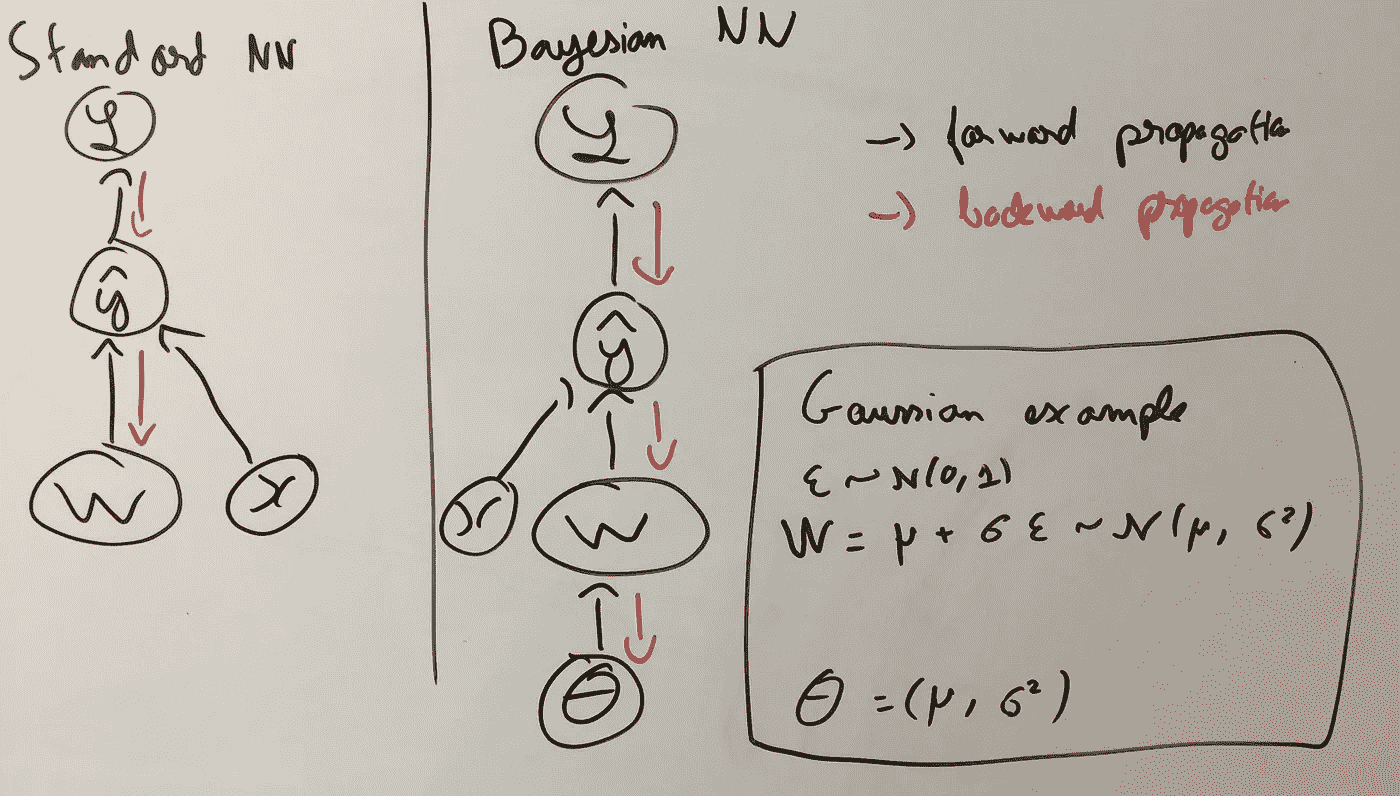 Standard NN
ℒ
ŷ
W
x
Bayesian NN
ℒ
ŷ
x
W
θ
→ forward propagation
→ backward propagation
Gaussian example
ε ~ N(0, 1)
W = μ + σ ε ~ N(μ, σ²)
θ = (μ, σ²)